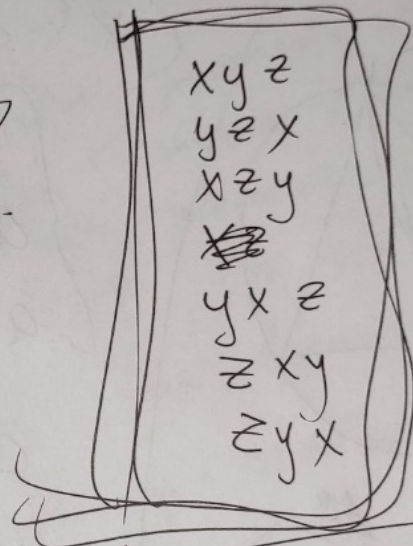 xyz
yzx
xzy
yxz
zxy
zyx